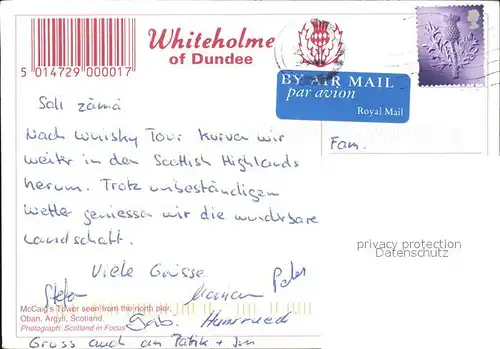 Whiteholme
of Dundee
5 014729 000017
BY AIR MAIL
par avion
Royal Mail
Sali zämä
Nach Whisky Tour kurven wir
weiter in den Scottish Highlands
herum. Trotz unbeständigem
Wetter geniessen wir die wunderbare
Landschaft.
Viele Grüsse
Stefan Peter
Gruss auch an Patrik +
Fam.
privacy protection
Datenschutz
McCaig's Tower seen from the north pier.
Oban, Argyll, Scotland
Photograph: Scotland in Focus